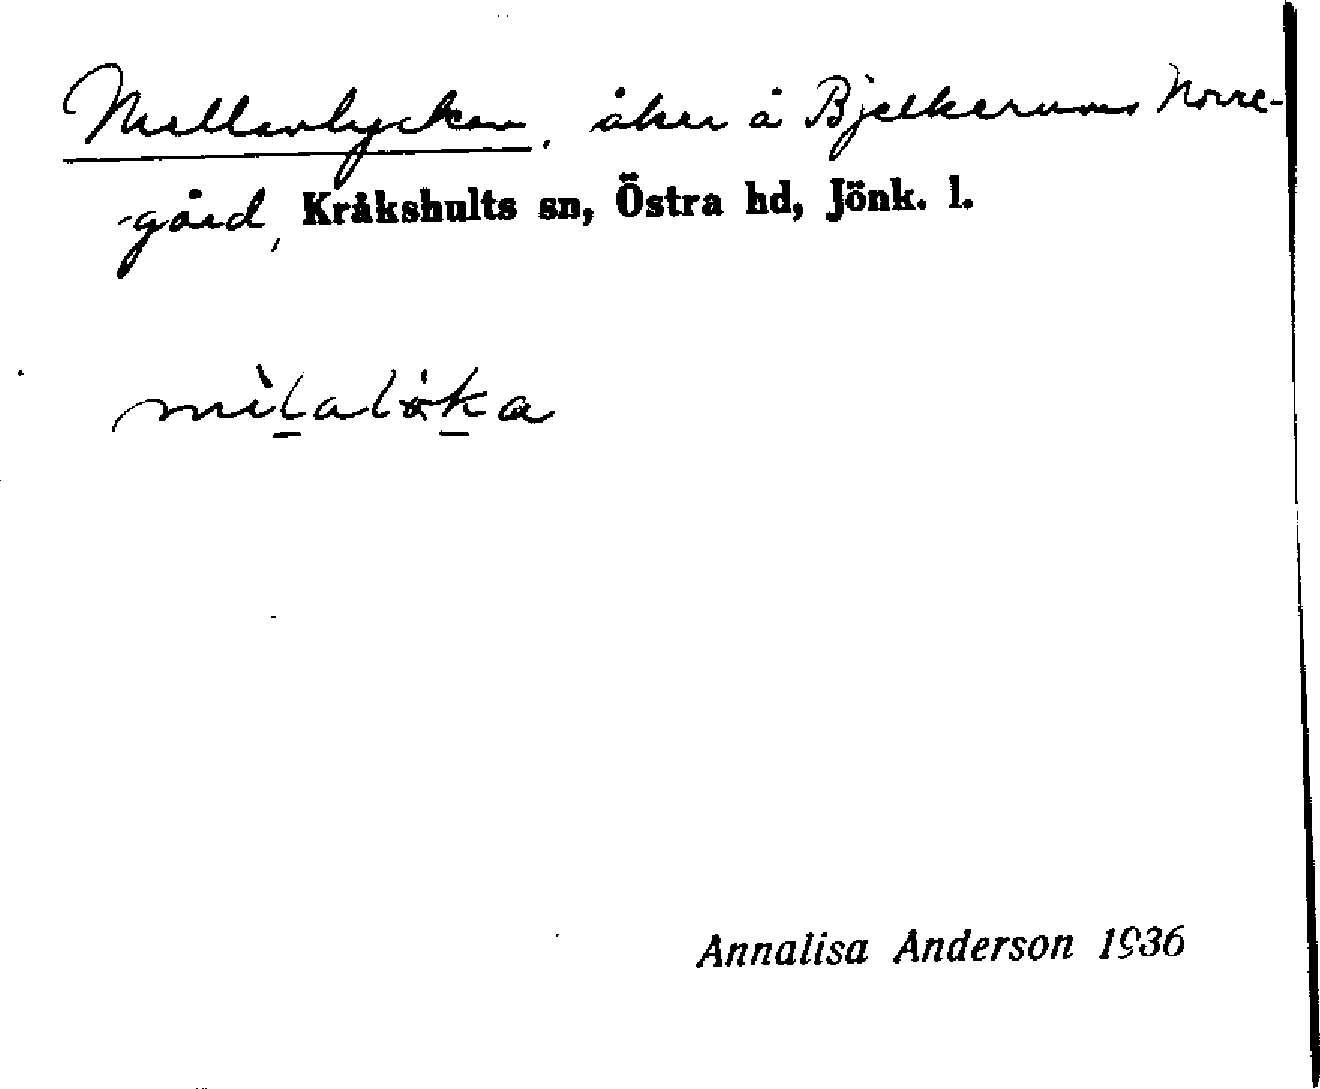 Mellanlyckan, åker å Bjelkerums Norre-
-gård, Kråkshults sn, Östra hd, Jönk. l.
mìlaløka
Annalisa Anderson 1936